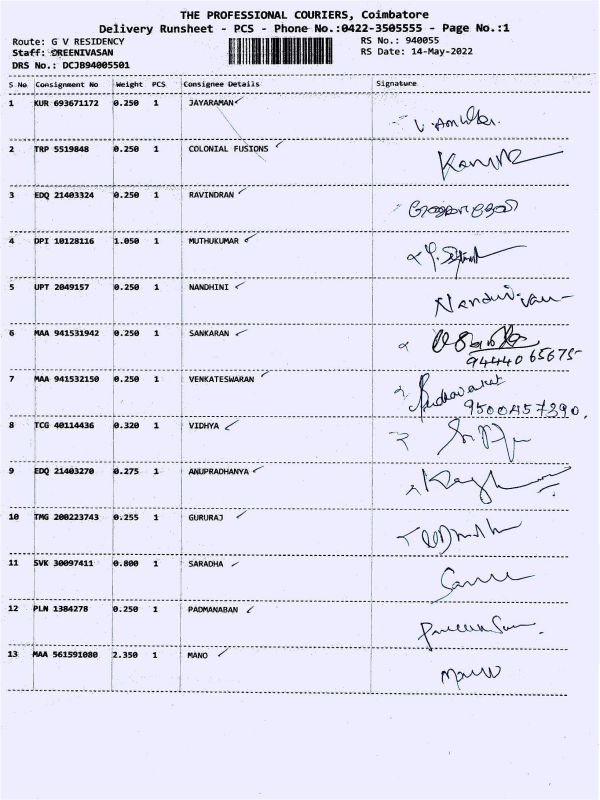 THE PROFESSIONAL COURIERS, Coimbatore
Delivery Runsheet - PCS - Phone No.:0422-3505555 - Page No.:1
Route: G V RESIDENCY RS No.: 940055
Staff: DREENIVASAN RS Date: 14-May-2022
DRS No.: DCJB94005501
S No Consignment No Weight PCS Consignee Details Signature
1 KUR 693671172 0.250 1 JAYARAMAN
2 TRP 5519848 0.250 1 COLONIAL FUSIONS
3 EDQ 21403324 0.250 1 RAVINDRAN
4 DPI 10128116 1.050 1 MUTHUKUMAR
5 UPT 2049157 0.250 1 NANDHINI
6 MAA 941531942 0.250 1 SANKARAN
94440 65675
7 MAA 941532150 0.250 1 VENKATESWARAN
9500457390
8 TCG 40114436 0.320 1 VIDHYA
9 EDQ 21403270 0.275 1 ANUPRADHANYA
10 TMG 200223743 0.255 1 GURURAJ
11 SVK 30097411 0.800 1 SARADHA
12 PLN 1384278 0.250 1 PADMANABAN
13 MAA 561591080 2.350 1 MANO